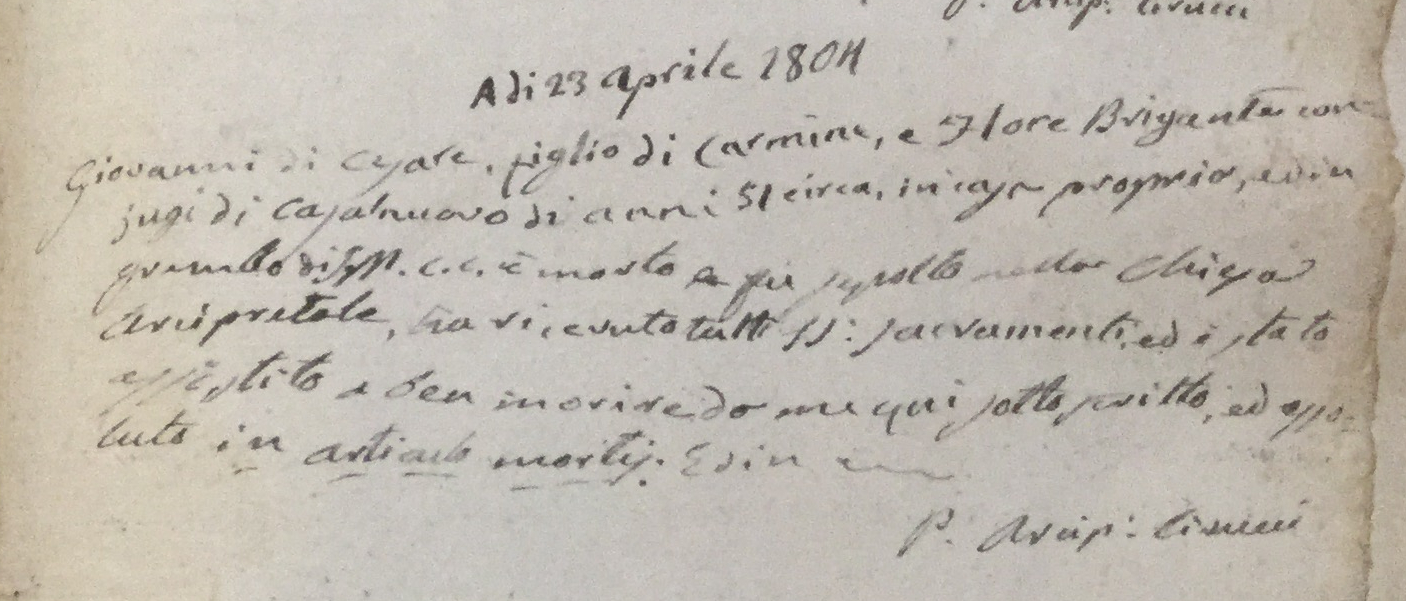 P. Arcip:
A di 23 Aprile 1804
Giovanni di Cesare, figlio di Carmine, e Flore Brigante con-
jugi di Casalnuovo di anni 51 circa, in casa propria, ed in
grembo di S. M. C. C. è morto e fu sepolto nella Chiesa
Arcipretale, ha ricevuto tutti SS: Sacramenti, ed è stato
assistito a ben morire da me qui sotto scritto, ed asso-
luto in articulo mortis. Ed in
P. Arcip: